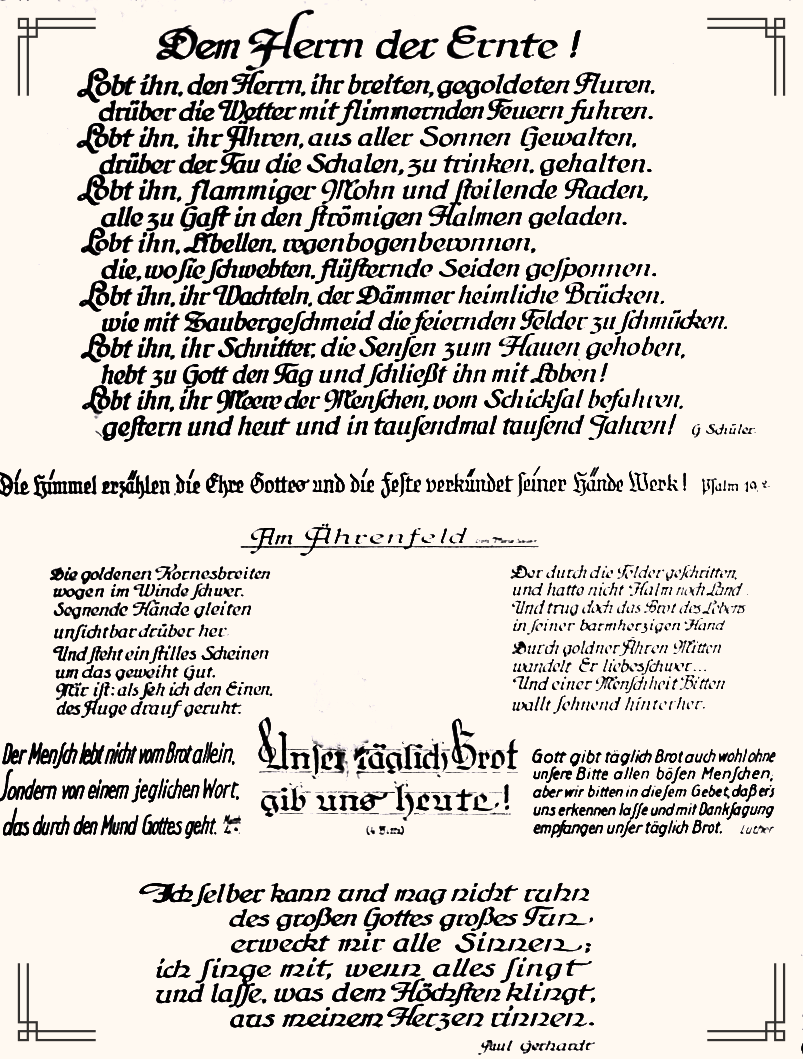 Dem Herrn der Ernte!
Lobt ihn, den Herrn, ihr breiten, gegoldeten Fluren,
drüber die Wetter mit flimmernden Feuern fuhren.
Lobt ihn, ihr Ähren, aus aller Sonnen Gewalten,
drüber der Tau die Schalen, zu trinken, gehalten.
Lobt ihn, flammiger Mohn und steilende Raden,
alle zu Gast in den strömigen Halmen geladen.
Lobt ihn, Libellen, regenbogenberonnen,
die, wo sie schwebten, flüsternde Seiden gesponnen.
Lobt ihn, ihr Wachteln, der Dämmer heimliche Brücken,
wie mit Zaubergeschmeid die feiernden Felder zu schmücken.
Lobt ihn, ihr Schnitter, die Sensen zum Hauen gehoben,
hebt zu Gott den Tag und schließt ihn mit Loben!
Lobt ihn, ihr Meere der Menschen, vom Schicksal befahren,
gestern und heut und in tausendmal tausend Jahren! G Schüler
Die Himmel erzählen die Ehre Gottes und die Feste verkündet seiner Hände Werk! Psalm 19,2.
Am Ährenfeld
Die goldenen Kornesbreiten
wogen im Winde schwer.
Segnende Hände gleiten
unsichtbar drüber her
Und steht ein stilles Scheinen
um das geweiht Gut.
Mir ist: als seh ich den Einen,
des Auge drauf geruht.
Der durch die Felder geschritten,
und hatte nicht Halm noch Land
Und trug doch das Brot des Lebens
in seiner barmherzigen Hand
Durch goldner Ähren Mitten
wandelt Er liebesschwer...
Und einer Menschheit Bitten
wallt sehnend hinterher.
Der Mensch lebt nicht vom Brot allein,
Sondern von einem jeglichen Wort,
das durch den Mund Gottes geht.
Unser täglich Brot
gib uns heute!
(4 B.m)
Gott gibt täglich Brot auch wohl ohne
unsere Bitte allen bösen Menschen;
aber wir bitten in diesem Gebet, daß er's
uns erkennen lasse und mit Danksagung
empfangen unser täglich Brot. Luther
Ich selber kann und mag nicht ruhn
des großen Gottes großes Tun,
erweckt mir alle Sinnen;
ich singe mit, wenn alles singt
und lasse, was dem Höchsten klingt,
aus meinem Herzen rinnen.
Paul Gerhardt